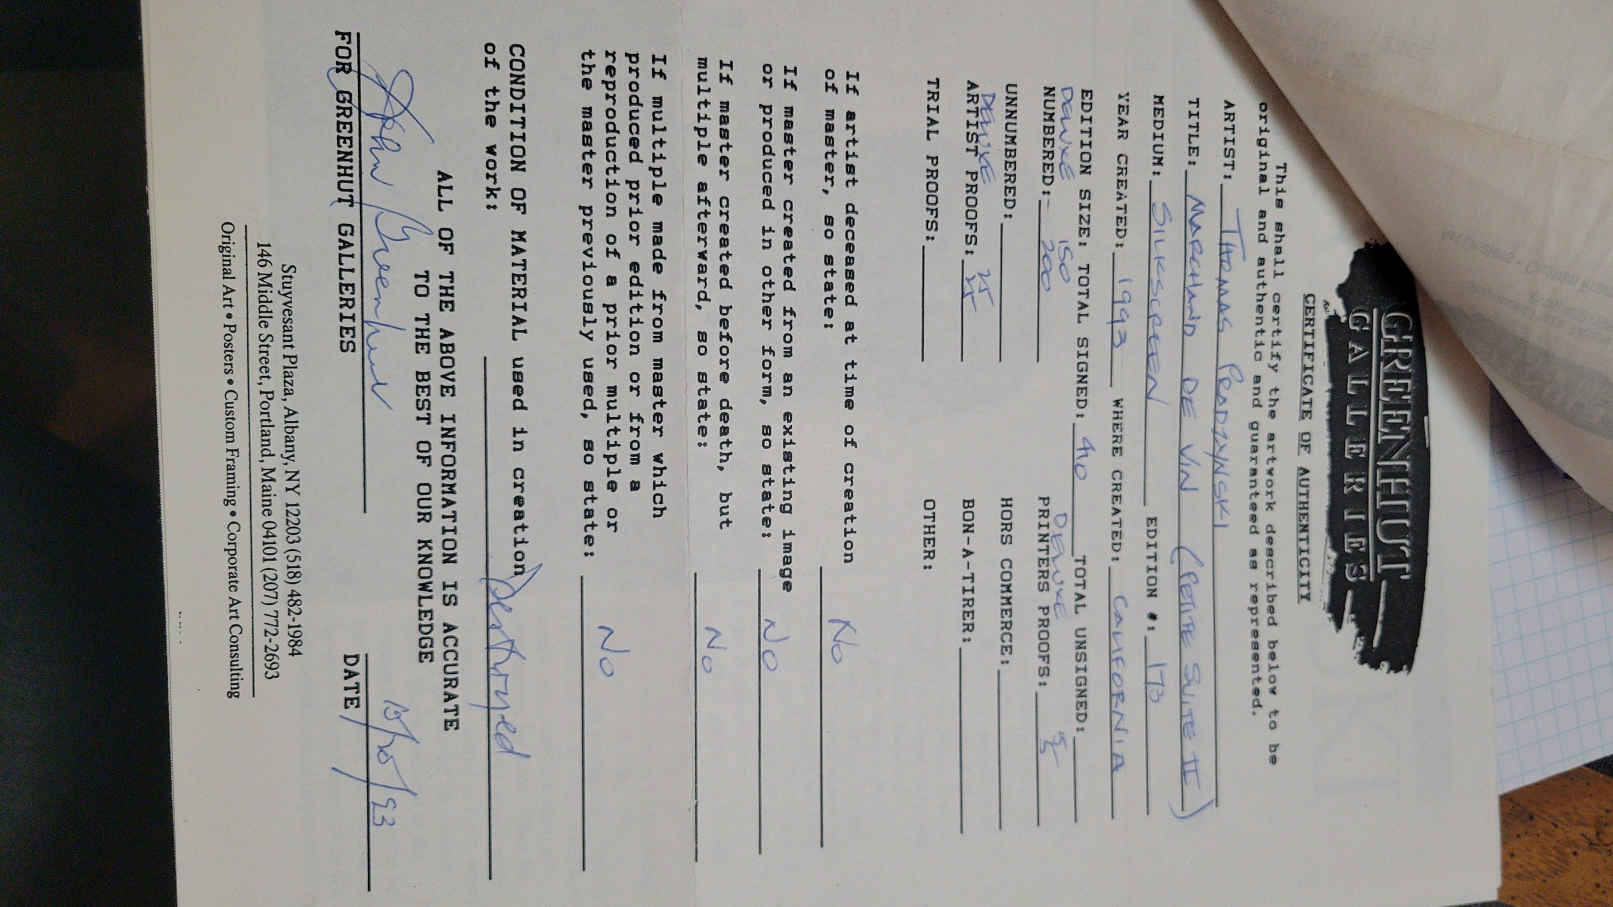 GREENHUT
GALLERIES
CERTIFICATE OF AUTHENTICITY
This shall certify the artwork described below to be
original and authentic and guaranteed as represented.
ARTIST: THOMAS PRADZYNSKI
TITLE: MARCHAND DE VIN (PETITE SUITE II)
MEDIUM: SILKSCREEN EDITION #: 173
YEAR CREATED: 1993 WHERE CREATED: CALIFORNIA
EDITION SIZE: TOTAL SIGNED: 410 TOTAL UNSIGNED:
DELUXE 150 DELUXE 5
NUMBERED: 200 PRINTERS PROOFS: 5
UNNUMBERED: HORS COMMERCE:
DELUXE 25
ARTIST PROOFS: 25 BON-A-TIRER:
TRIAL PROOFS: OTHER:
If artist deceased at time of creation
of master, so state: No
If master created from an existing image
or produced in other form, so state: No
If master created before death, but
multiple afterward, so state: No
If multiple made from master which
produced prior edition or from a
reproduction of a prior multiple or
the master previously used, so state: No
CONDITION OF MATERIAL used in creation
of the work: Destroyed
ALL OF THE ABOVE INFORMATION IS ACCURATE
TO THE BEST OF OUR KNOWLEDGE
John Greenhut
FOR GREENHUT GALLERIES DATE
Stuyvesant Plaza, Albany, NY 12203 (518) 482-1984
146 Middle Street, Portland, Maine 04101 (207) 772-2693
Original Art • Posters • Custom Framing • Corporate Art Consulting